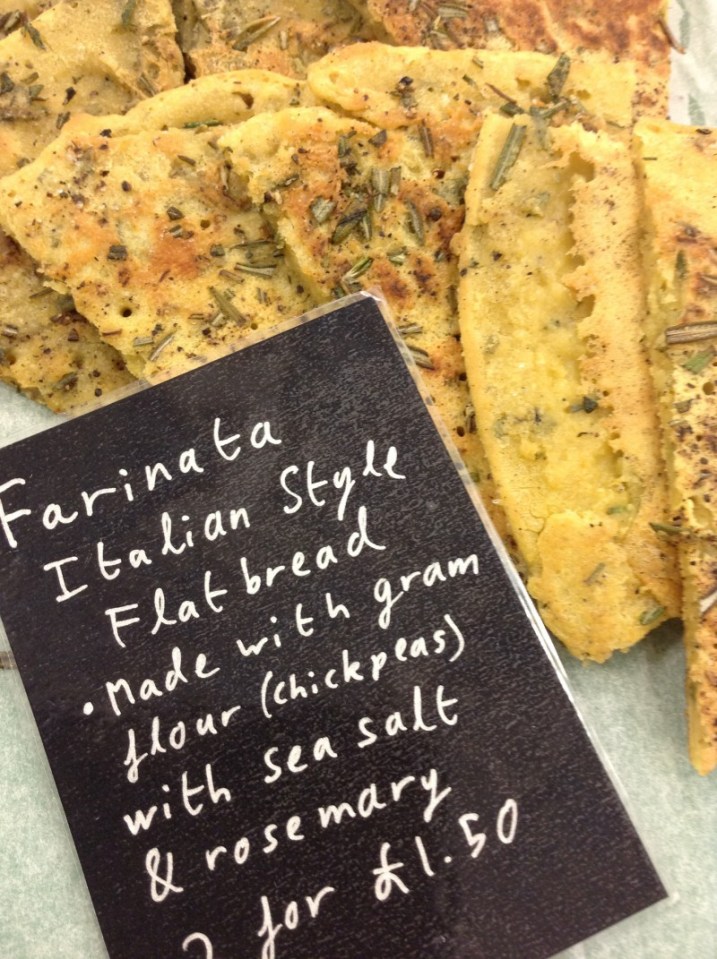 Farinata
Italian Style
Flatbread
• Made with gram
flour (chickpeas)
with sea salt
& rosemary
for £1.50